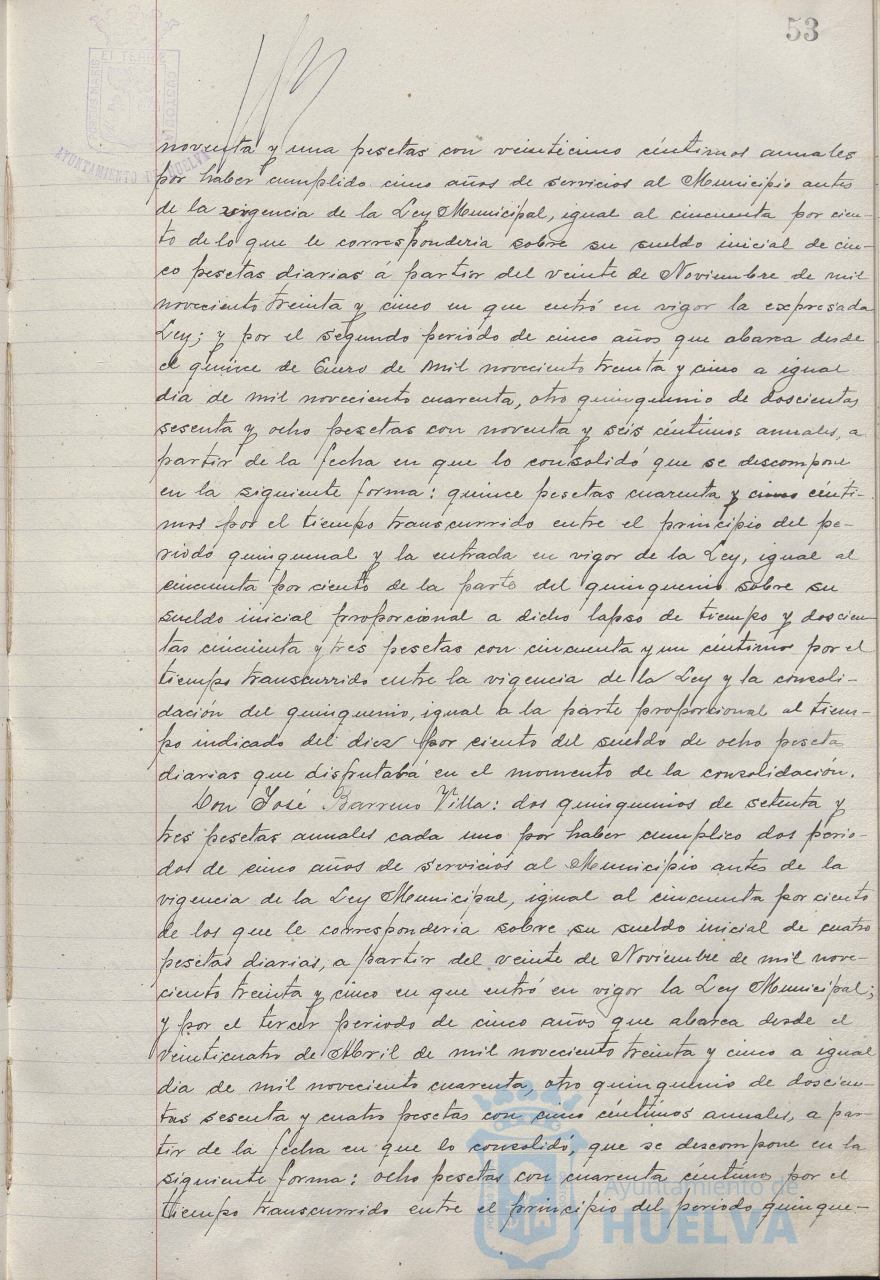 53
PORTUS MARIS ET TERRAE CUSTODIA
AYUNTAMIENTO DE HUELVA
noventa y una pesetas con veinticinco céntimos anuales
por haber cumplido cinco años de servicios al Municipio antes
de la vigencia de la Ley Municipal, igual al cincuenta por cien-
to de lo que le correspondería sobre su sueldo inicial de cin-
co pesetas diarias á partir del veinte de Noviembre de mil
novecientotreinta y cinco en que entró en vigor la expresada
Ley; y por el segundo periodo de cinco años que abarca desde
el quince de Enero de mil novecientotreinta y cinco a igual
dia de mil novecientocuarenta, otro quinquenio de doscientas
sesenta y ocho pesetas con noventa y seis céntimos anuales, a
partir de la fecha en que lo consolidó que se descompone
en la siguiente forma: quince pesetas cuarenta y cinco cénti-
mos por el tiempo transcurrido entre el principio del pe-
riodo quinquenal y la entrada en vigor de la Ley, igual al
cincuenta por ciento de la parte del quinquenio sobre su
sueldo inicial proporcional a dicho lapso de tiempo y doscien-
tas cincuenta y tres pesetas con cincuenta y un céntimos por el
tiempo transcurrido entre la vigencia de la Ley y la consoli-
dación del quinquenio, igual a la parte proporcional al tiem-
po indicado del diez por ciento del sueldo de ocho pesetas
diarias que disfrutaba en el momento de la consolidación.
Don José Barreno Villa: dos quinquenios de setenta y
tres pesetas anuales cada uno por haber cumplico dos perio-
dos de cinco años de servicios al Municipio antes de la
vigencia de la Ley Municipal, igual al cincuenta por ciento
de los que le correspondería sobre su sueldo inicial de cuatro
pesetas diarias, a partir del veinte de Noviembre de mil nove-
ciento treinta y cinco en que entró en vigor la Ley Municipal;
y por el tercer periodo de cinco años que abarca desde el
veinticuatro de Abril de mil novecientotreinta y cinco a igual
dia de mil novecientocuarenta, otro quinquenio de doscien-
tas sesenta y cuatro pesetas con cinco céntimos anuales, a par-
tir de la fecha en que lo consolidó, que se descompone en la
siguiente forma: ocho pesetas con cuarenta céntimos por el
tiempo transcurrido entre el principio del periodo quinque-
Ayuntamiento de
HUELVA